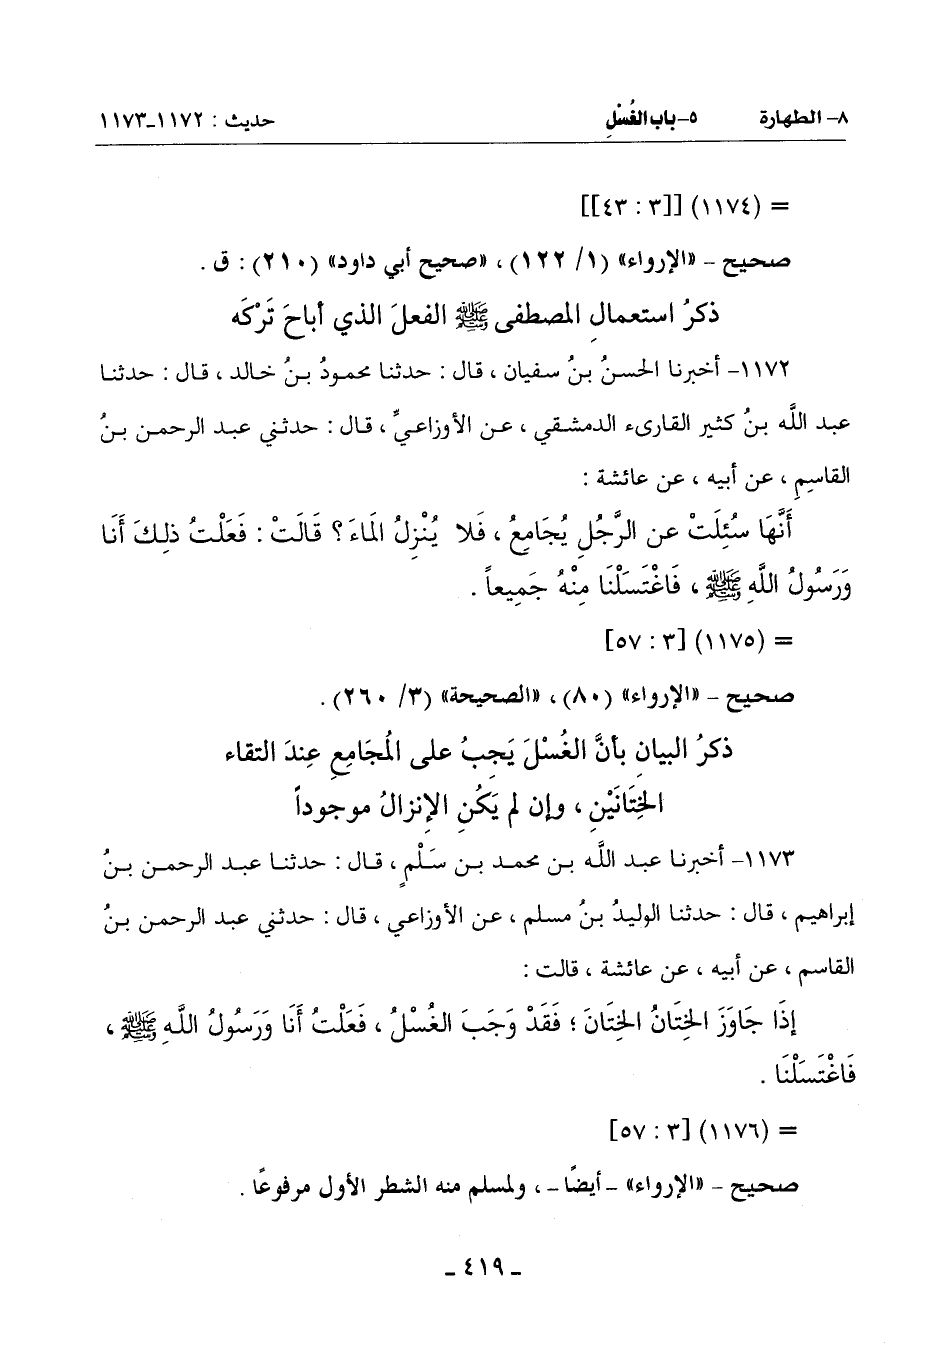 ٨- الطهارة ٥- باب الغُسْلِ حديث : ١١٧٢-١١٧٣
= (١١٧٤) [[٣ : ٤٣]]
صحيح - «الإرواء» (١/ ١٢٢) ، «صحيح أبي داود» (٢١٠) : ق .
ذكرُ استعمالِ المصطفى ﷺ الفعلَ الذي أباحَ تَرْكَه
١١٧٢- أخبرنا الحسنُ بنُ سفيان ، قال : حدثنا محمودُ بنُ خالد ، قال : حدثنا
عبد اللَّه بنُ كثير القارىء الدمشقي ، عن الأوزاعيِّ ، قال : حدثني عبد الرحمن بنُ
القاسمِ ، عن أبيه ، عن عائشة :
أَنَّهَا سُئِلَتْ عن الرَّجُلِ يُجَامِعُ ، فَلا يُنْزِلُ المَاءَ ؟ قَالَتْ : فَعَلْتُ ذلِكَ أَنَا
وَرَسُولُ اللَّهِ ﷺ ، فَاغْتَسَلْنَا مِنْهُ جَمِيعاً .
= (١١٧٥) [٣ : ٥٧]
صحيح - «الإرواء» (٨٠) ، «الصحيحة» (٣/ ٢٦٠) .
ذكرُ البيانِ بأنَّ الغُسْلَ يَجِبُ على المُجَامِعِ عِندَ التقاء
الخِتَانَيْنِ ، وإن لم يَكُنِ الإنزالُ موجوداً
١١٧٣- أخبرنا عبد اللَّه بن محمد بن سَلْمٍ ، قال : حدثنا عبد الرحمن بنُ
إبراهيم ، قال : حدثنا الوليدُ بنُ مسلم ، عن الأوزاعي ، قال : حدثني عبد الرحمن بنُ
القاسم ، عن أبيه ، عن عائشة ، قالت :
إذَا جَاوَزَ الخِتَانُ الخِتَانَ ؛ فَقَدْ وَجَبَ الغُسْلُ ، فَعَلْتُ أَنَا وَرَسُولُ اللَّهِ ﷺ ،
فَاغْتَسَلْنَا .
= (١١٧٦) [٣ : ٥٧]
صحيح - «الإرواء» - أيضاً - ، ولمسلم منه الشطر الأول مرفوعًا .
ـ ٤١٩ ـ